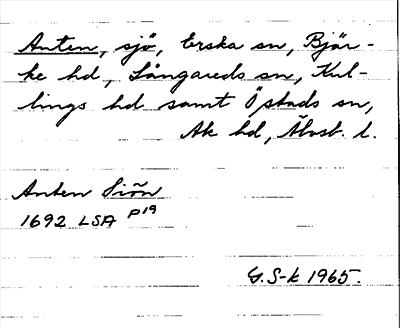 Anten, sjö, Erska sn, Bjär-
ke hd, Långareds sn, Kul-
lings hd samt Östads sn,
Ale hd, Älvsb. l.
Anten Siön
1692 LSA P19
G.S-k 1965.